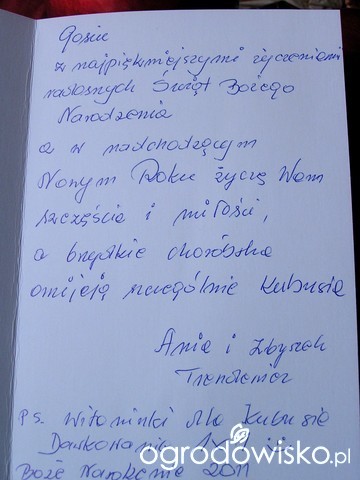 Gosiu
z najpiękniejszymi życzeniami
radosnych Świąt Bożego
Narodzenia
a w nadchodzącym
Nowym Roku życzę Wam
szczęścia i miłości,
a brzydkie choróbska
omijają szczególnie Kubusia
Ania i Zbyszek
PS. Witaminki dla Kubusia
Boże Narodzenie 2011
ogrodowisko.pl